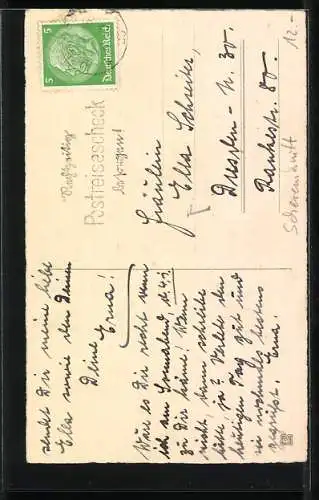 sendet Dir meine liebe
Ella sowie den Damen
Deine Erna!
Wäre es Dir recht wenn
ich am Sonnabend d. 4.
zu Dir käme? Wenn
nicht, dann schreibe
bitte, ja? Verlebt den
heutigen Tag gut und
sei nochmals bestens
gegrüßt. Erna!
5 5
Deutsches Reich
Rechtzeitig
Postreisescheck
besorgen!
Fräulein
Ella Schreiber,
Dresden - N. 30.
80.
12.-
Scherenschnitt